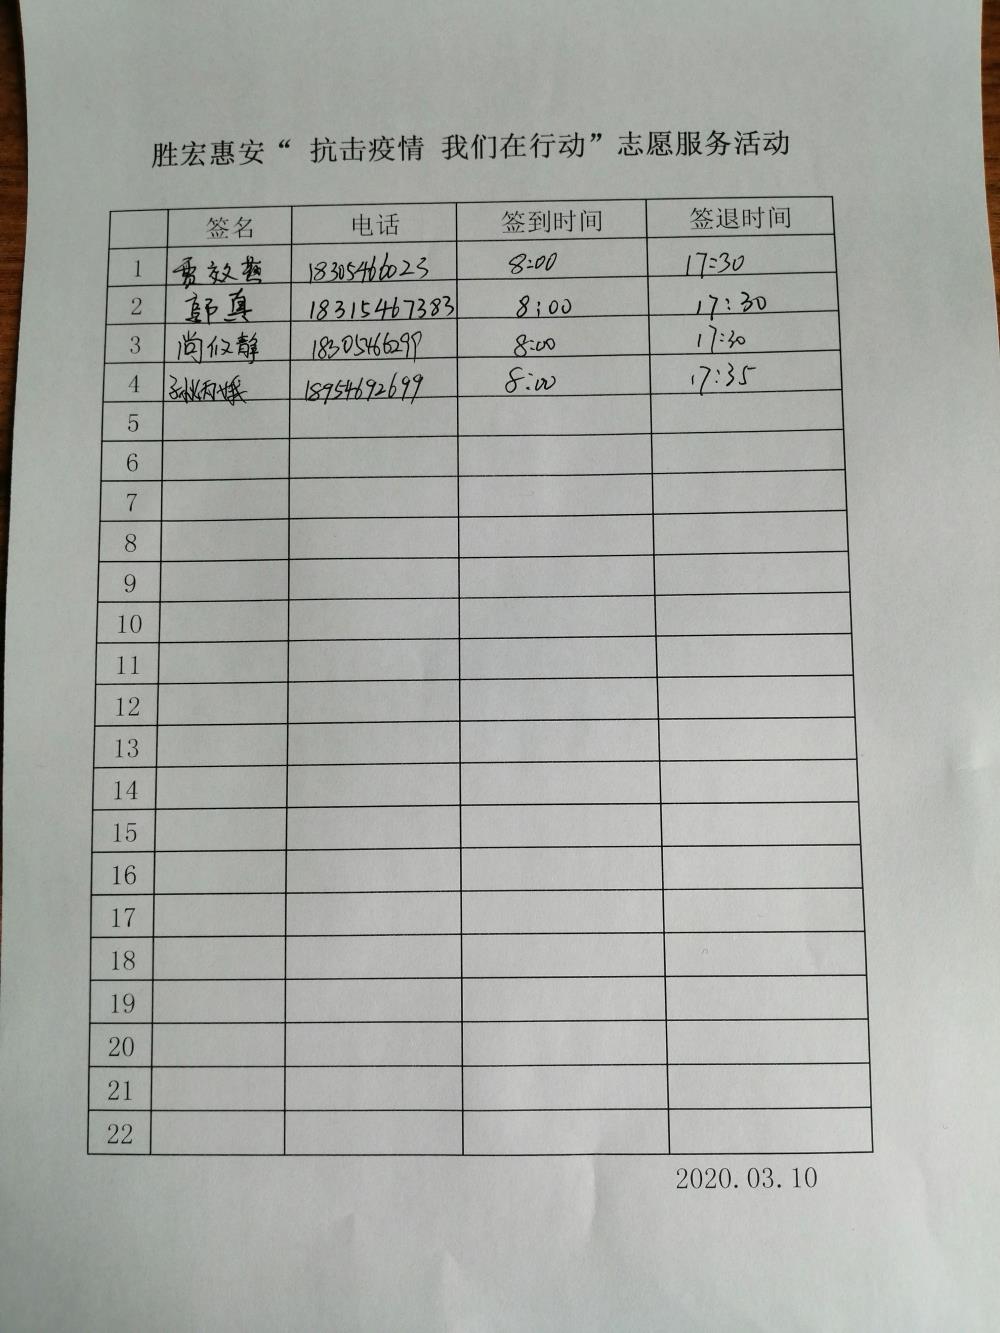 胜宏惠安“ 抗击疫情 我们在行动”志愿服务活动
签名 电话 签到时间 签退时间
1 贾效燕 18305466023 8:00 17:30
2 郭真 18315467383 8:00 17:30
3 尚仪静 18305466299 8:00 17:30
4 孙丙娥 18954692699 8:00 17:35
5
6
7
8
9
10
11
12
13
14
15
16
17
18
19
20
21
22
2020.03.10